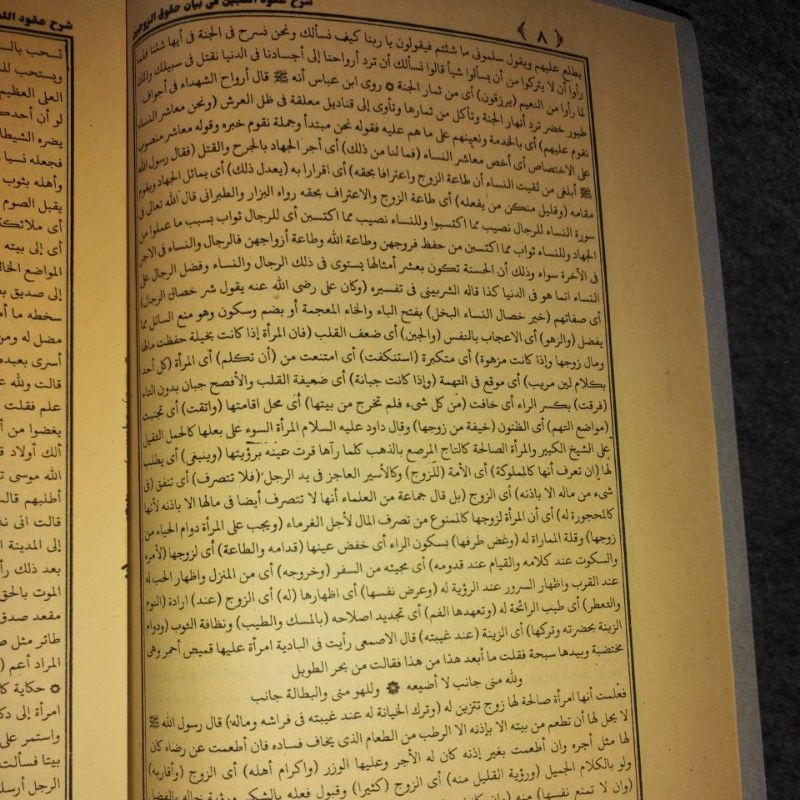 شرح عقود اللجين فى بيان حقوق الزوجين
﴿ ٨ ﴾
يطلع عليهم ويقول سلونى ما شئتم فيقولون يا ربنا كيف نسألك ونحن نسرح فى الجنة فى أيها شئنا فلما
رأوا أن لا يتركوا من أن يسألوا شيأ قالوا نسألك أن ترد أرواحنا إلى أجسادنا فى الدنيا نقتل فى سبيلك وذلك
لما رأوا من النعيم (يرزقون) أى من ثمار الجنة ۞ روى ابن عباس أنه ﷺ قال أرواح الشهداء فى أجواف
طيور خضر ترد أنهار الجنة وتأكل من ثمارها وتأوى إلى قناديل معلقة فى ظل العرش (ونحن معاشر النساء
نقوم عليهم) أى بالخدمة ونعينهم على ما هم عليه فقوله نحن مبتدأ وجملة نقوم خبره وقوله معاشر منصوب
على الاختصاص أى أخص معاشر النساء (فما لنا من ذلك) أى أجر الجهاد بالجرح والقتل (فقال رسول الله
ﷺ أبلغى من لقيت النساء أن طاعة الزوج واعترافا بحقه) أى اقرارا به (يعدل ذلك) أى يماثل الجهاد ويقوم
مقامه (وقليل منكن من يفعله) أى طاعة الزوج والاعتراف بحقه رواه البزار والطبرانى قال الله تعالى فى
سورة النساء للرجال نصيب مما اكتسبوا وللنساء نصيب مما اكتسبن أى للرجال ثواب بسبب ما عملوا من
الجهاد وللنساء ثواب مما اكتسبن من حفظ فروجهن وطاعة الله وطاعة أزواجهن فالرجال والنساء فى الاجر
فى الآخرة سواء وذلك أن الحسنة تكون بعشر أمثالها يستوى فى ذلك الرجال والنساء وفضل الرجال على
النساء انما هو فى الدنيا كذا قاله الشربينى فى تفسيره (وكان على رضى الله عنه يقول شر خصال الرجال)
أى صفاتهم (خير خصال النساء البخل) بفتح الباء والخاء المعجمة أو بضم وسكون وهو منع السائل مما
يفضل (والزهو) أى الاعجاب بالنفس (والجبن) أى ضعف القلب (فان المرأة إذا كانت بخيلة حفظت مالها
ومال زوجها وإذا كانت مزهوة) أى متكبرة (استنكفت) أى امتنعت من (أن تكلم) أى المرأة (كل أحد
بكلام لين مريب) أى موقع فى التهمة (وإذا كانت جبانة) أى ضعيفة القلب والأفصح جبان بدون التاء
(فرقت) بكسر الراء أى خافت (من كل شىء فلم تخرج من بيتها) أى محل اقامتها (واتقت) أى تجنبت
(مواضع التهم) أى الظنون (خيفة من زوجها) وقال داود عليه السلام المرأة السوء على بعلها كالحمل الثقيل
على الشيخ الكبير والمرأة الصالحة كالتاج المرصع بالذهب كلما رآها قرت عينه برؤيتها (وينبغى) أى يطلب
لها (ان تعرف أنها كالمملوكة) أى الأمة (للزوج) وكالأسير العاجز فى يد الرجل (فلا تتصرف) أى تنفق (فى
شىء من ماله الا باذنه) أى الزوج (بل قال جماعة من العلماء أنها لا تتصرف أيضا فى مالها الا باذنه لأنها
كالمحجورة له) أى أن المرأة لزوجها كالممنوع من تصرف المال لأجل الغرماء (ويجب على المرأة دوام الحياء من
زوجها) وقلة المماراة له (وغض طرفها) بسكون الراء أى خفض عينها (قدامه والطاعة) أى لزوجها (لأمره
والسكوت عند كلامه والقيام عند قدومه) أى مجيئه من السفر (وخروجه) أى من المنزل واظهار الحب له
عند القرب واظهار السرور عند الرؤية له (وعرض نفسها) أى اظهارها (له) أى الزوج (عند) ارادة (النوم
والتعطر) أى طيب الرائحة له (وتعهدها الفم) أى تجديد اصلاحه (بالمسك والطيب) ونظافة الثوب (ودوام
الزينة بحضرته وتركها) أى الزينة (عند غيبته) قال الاصمعى رأيت فى البادية امرأة عليها قميص أحمر وهى
مختضبة وبيدها سبحة فقلت ما أبعد هذا من هذا فقالت من بحر الطويل
ولله منى جانب لا أضيعه ۞ وللهو منى والبطالة جانب
فعلمت أنها امرأة صالحة لها زوج تتزين له (وترك الخيانة له عند غيبته فى فراشه وماله) قال رسول الله ﷺ
لا يحل لها أن تطعم من بيته الا بإذنه الا الرطب من الطعام الذى يخاف فساده فان أطعمت عن رضاه كان
لها مثل أجره وان أطعمت بغير إذنه كان له الأجر وعليها الوزر (واكرام أهله) أى الزوج (وأقاربه)
ولو بالكلام الجميل (ورؤية القليل منه) أى الزوج (كثيرا) وقبول فعله بالشكر ورؤية حاله بالفضل
(وان لا تمنع نفسها) منه (وان كانت
شرح عقود
تسحب
ويستحب
العلى العظيم
لو أن أحدكم
يضره الشيطان
فجعله نسيا
وأهله بثوب
يقبل الصوم
أى ملائكته
أى إلى بيته
المواضع
إلى صديق
سخطه ما
مضل له ومن
أسرى بعبده
قالت والله
علم فقلت
يغضوا من
ألك أولاد
الله موسى
أطلبهم
قالت انى
إلى المدينة
بعد ذلك
الموت بالحق
مقعد صدق
طائر مثل
المراد أعم
۞ حكاية
امرأة إلى
واستمر على
بيتا فسألت
الرجل